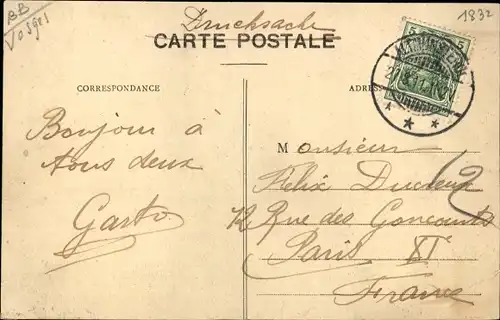 BB
Vosges
1832
Drucksache
CARTE POSTALE
CORRESPONDANCE
5 5
Bonjour à
tous deux
Monsieur
Félix
12 Rue des Goncourt
Paris XI
France
12